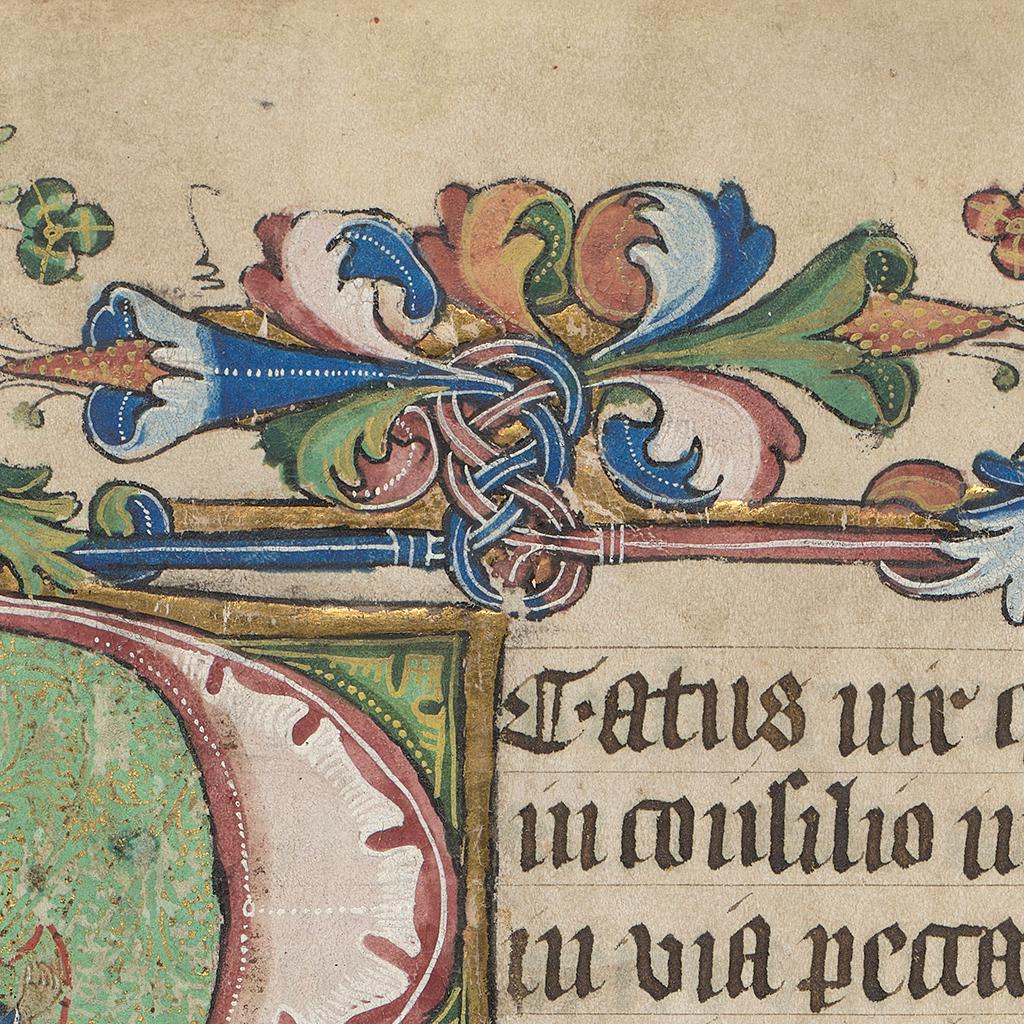 Eatus uir
in consilio
in via pecca